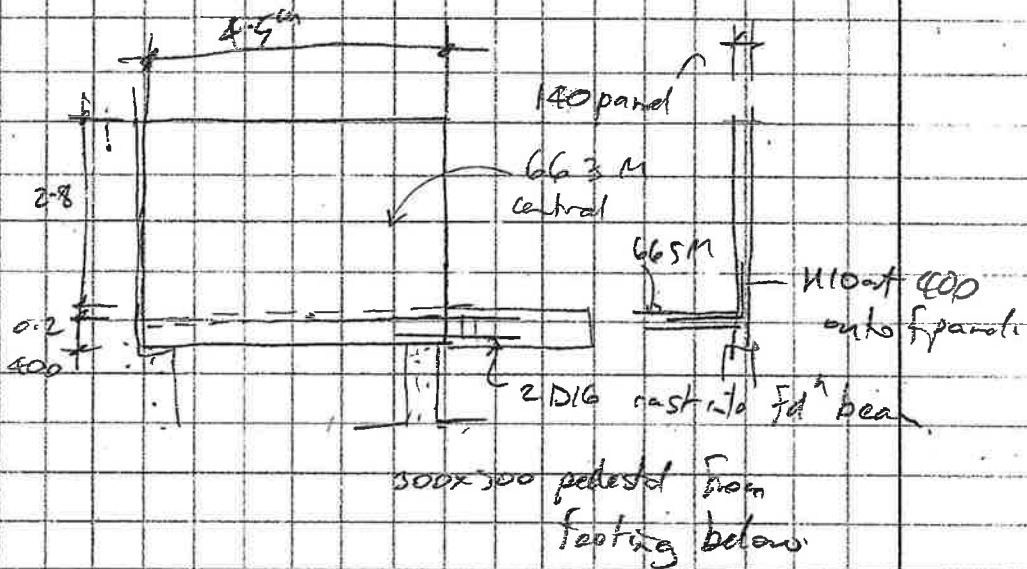 4.5m
140 panel
2.8
663 M
central
665M
H10 at 400
onto panel
0.2
400
2 D16 cast into Fdn beam
300x300 pedestal from
footing below